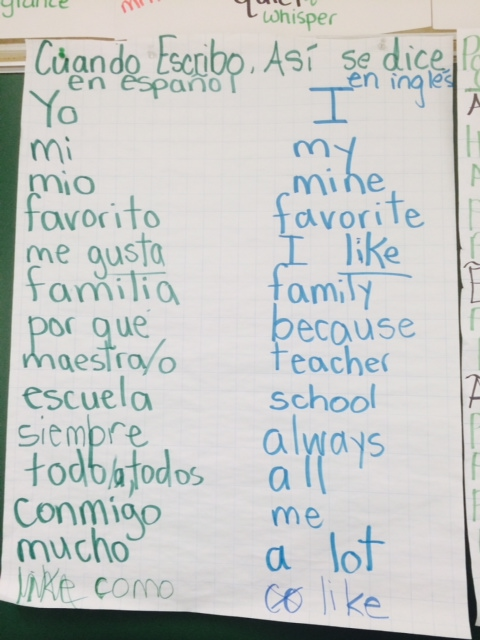 glance
quiet
whisper
Cuando Escribo, Así se dice
en español en inglés
Yo I
mi my
mio mine
favorito favorite
me gusta I like
familia family
por que because
maestra/o teacher
escuela school
siempre always
todo/a, todos all
conmigo me
mucho a lot
como like